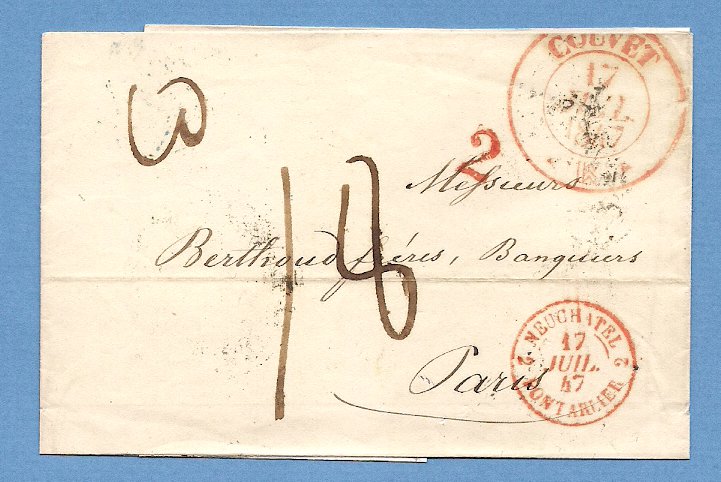 COUVET
17
JUIL
1847
SUISSE
2
Messieurs
Berthoud frères, Banquiers
18
Paris
2 NEUCHATEL 2
17
JUIL.
47
PONTARLIER